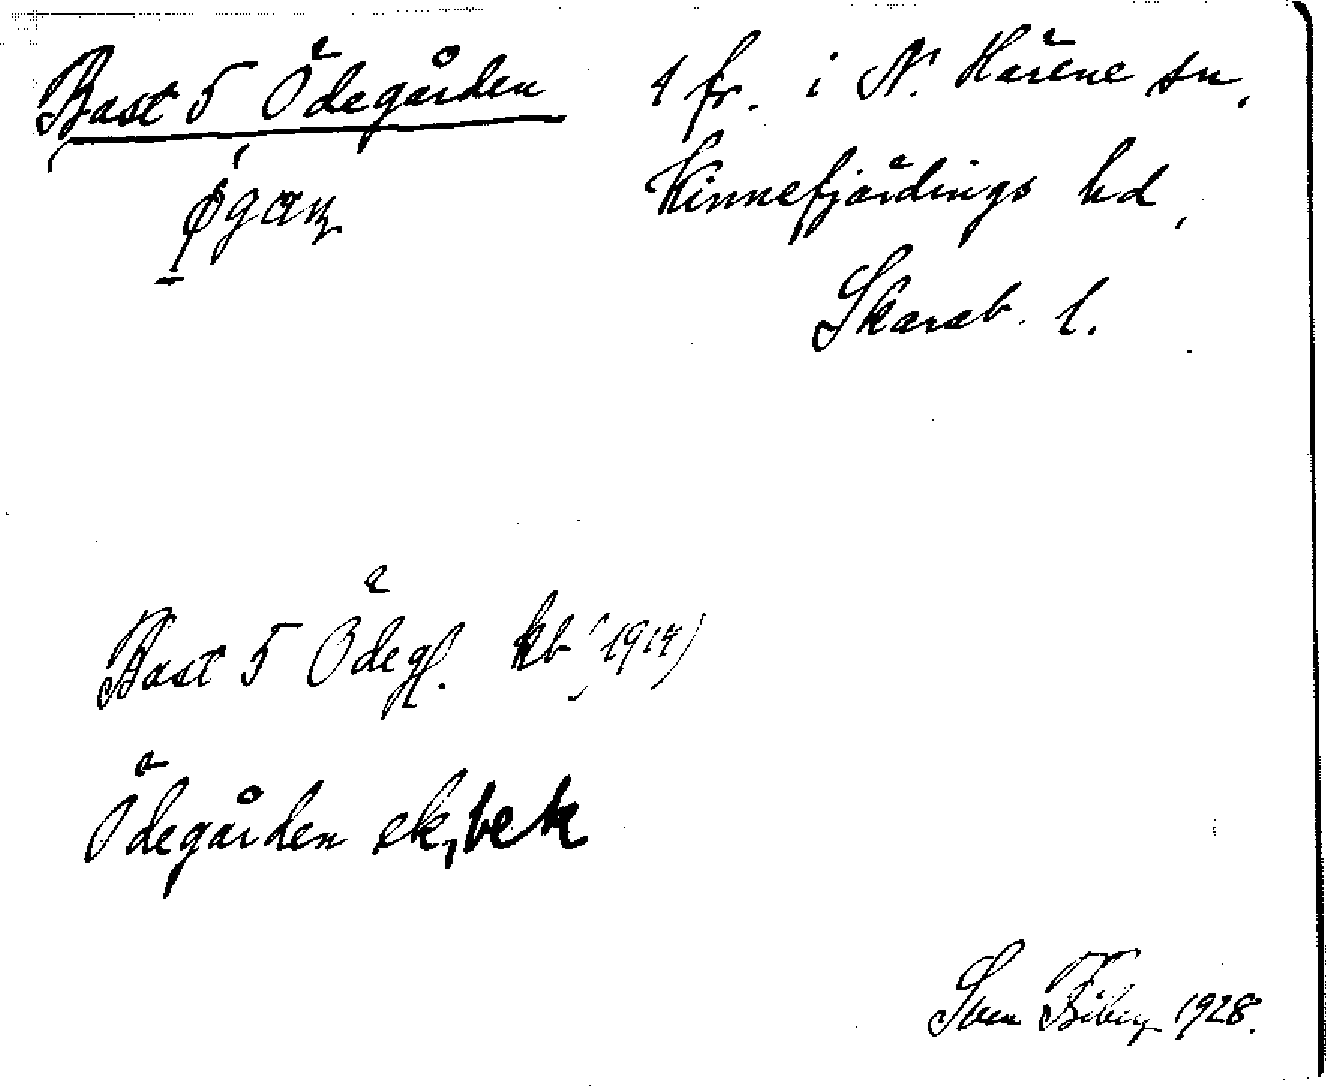 Bast 5 Ödegården
1 fr. i N. Härene sn,
Kinnefjärdings hd,
Skarab. l.
Bast 5 Ödeg. kb (1914)
Ödegården ek, bek
Sven 1928.